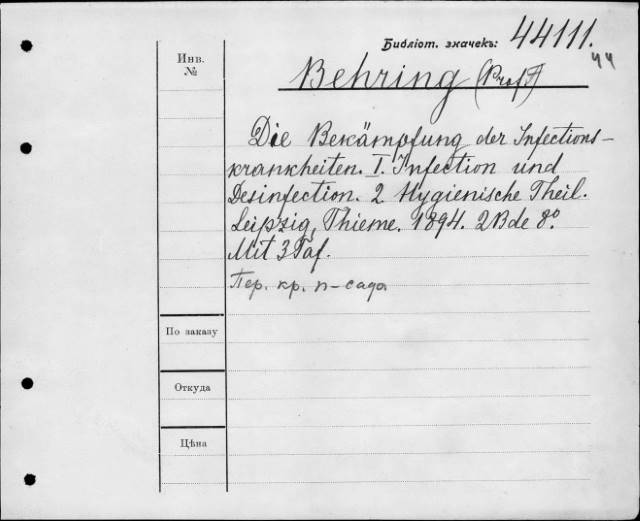 Библіот. значекъ: 44111.
44
Инв.
№
Behring (Prof)
Die Bekämpfung der Infections-
krankheiten. I. Infection und
Desinfection. 2 Hygienische Theil.
Leipzig, Thieme. 1894. 2 Bde 8°.
Mit 3 Taf.
Пер. кр. п-сада
По заказу
Откуда
Цѣна